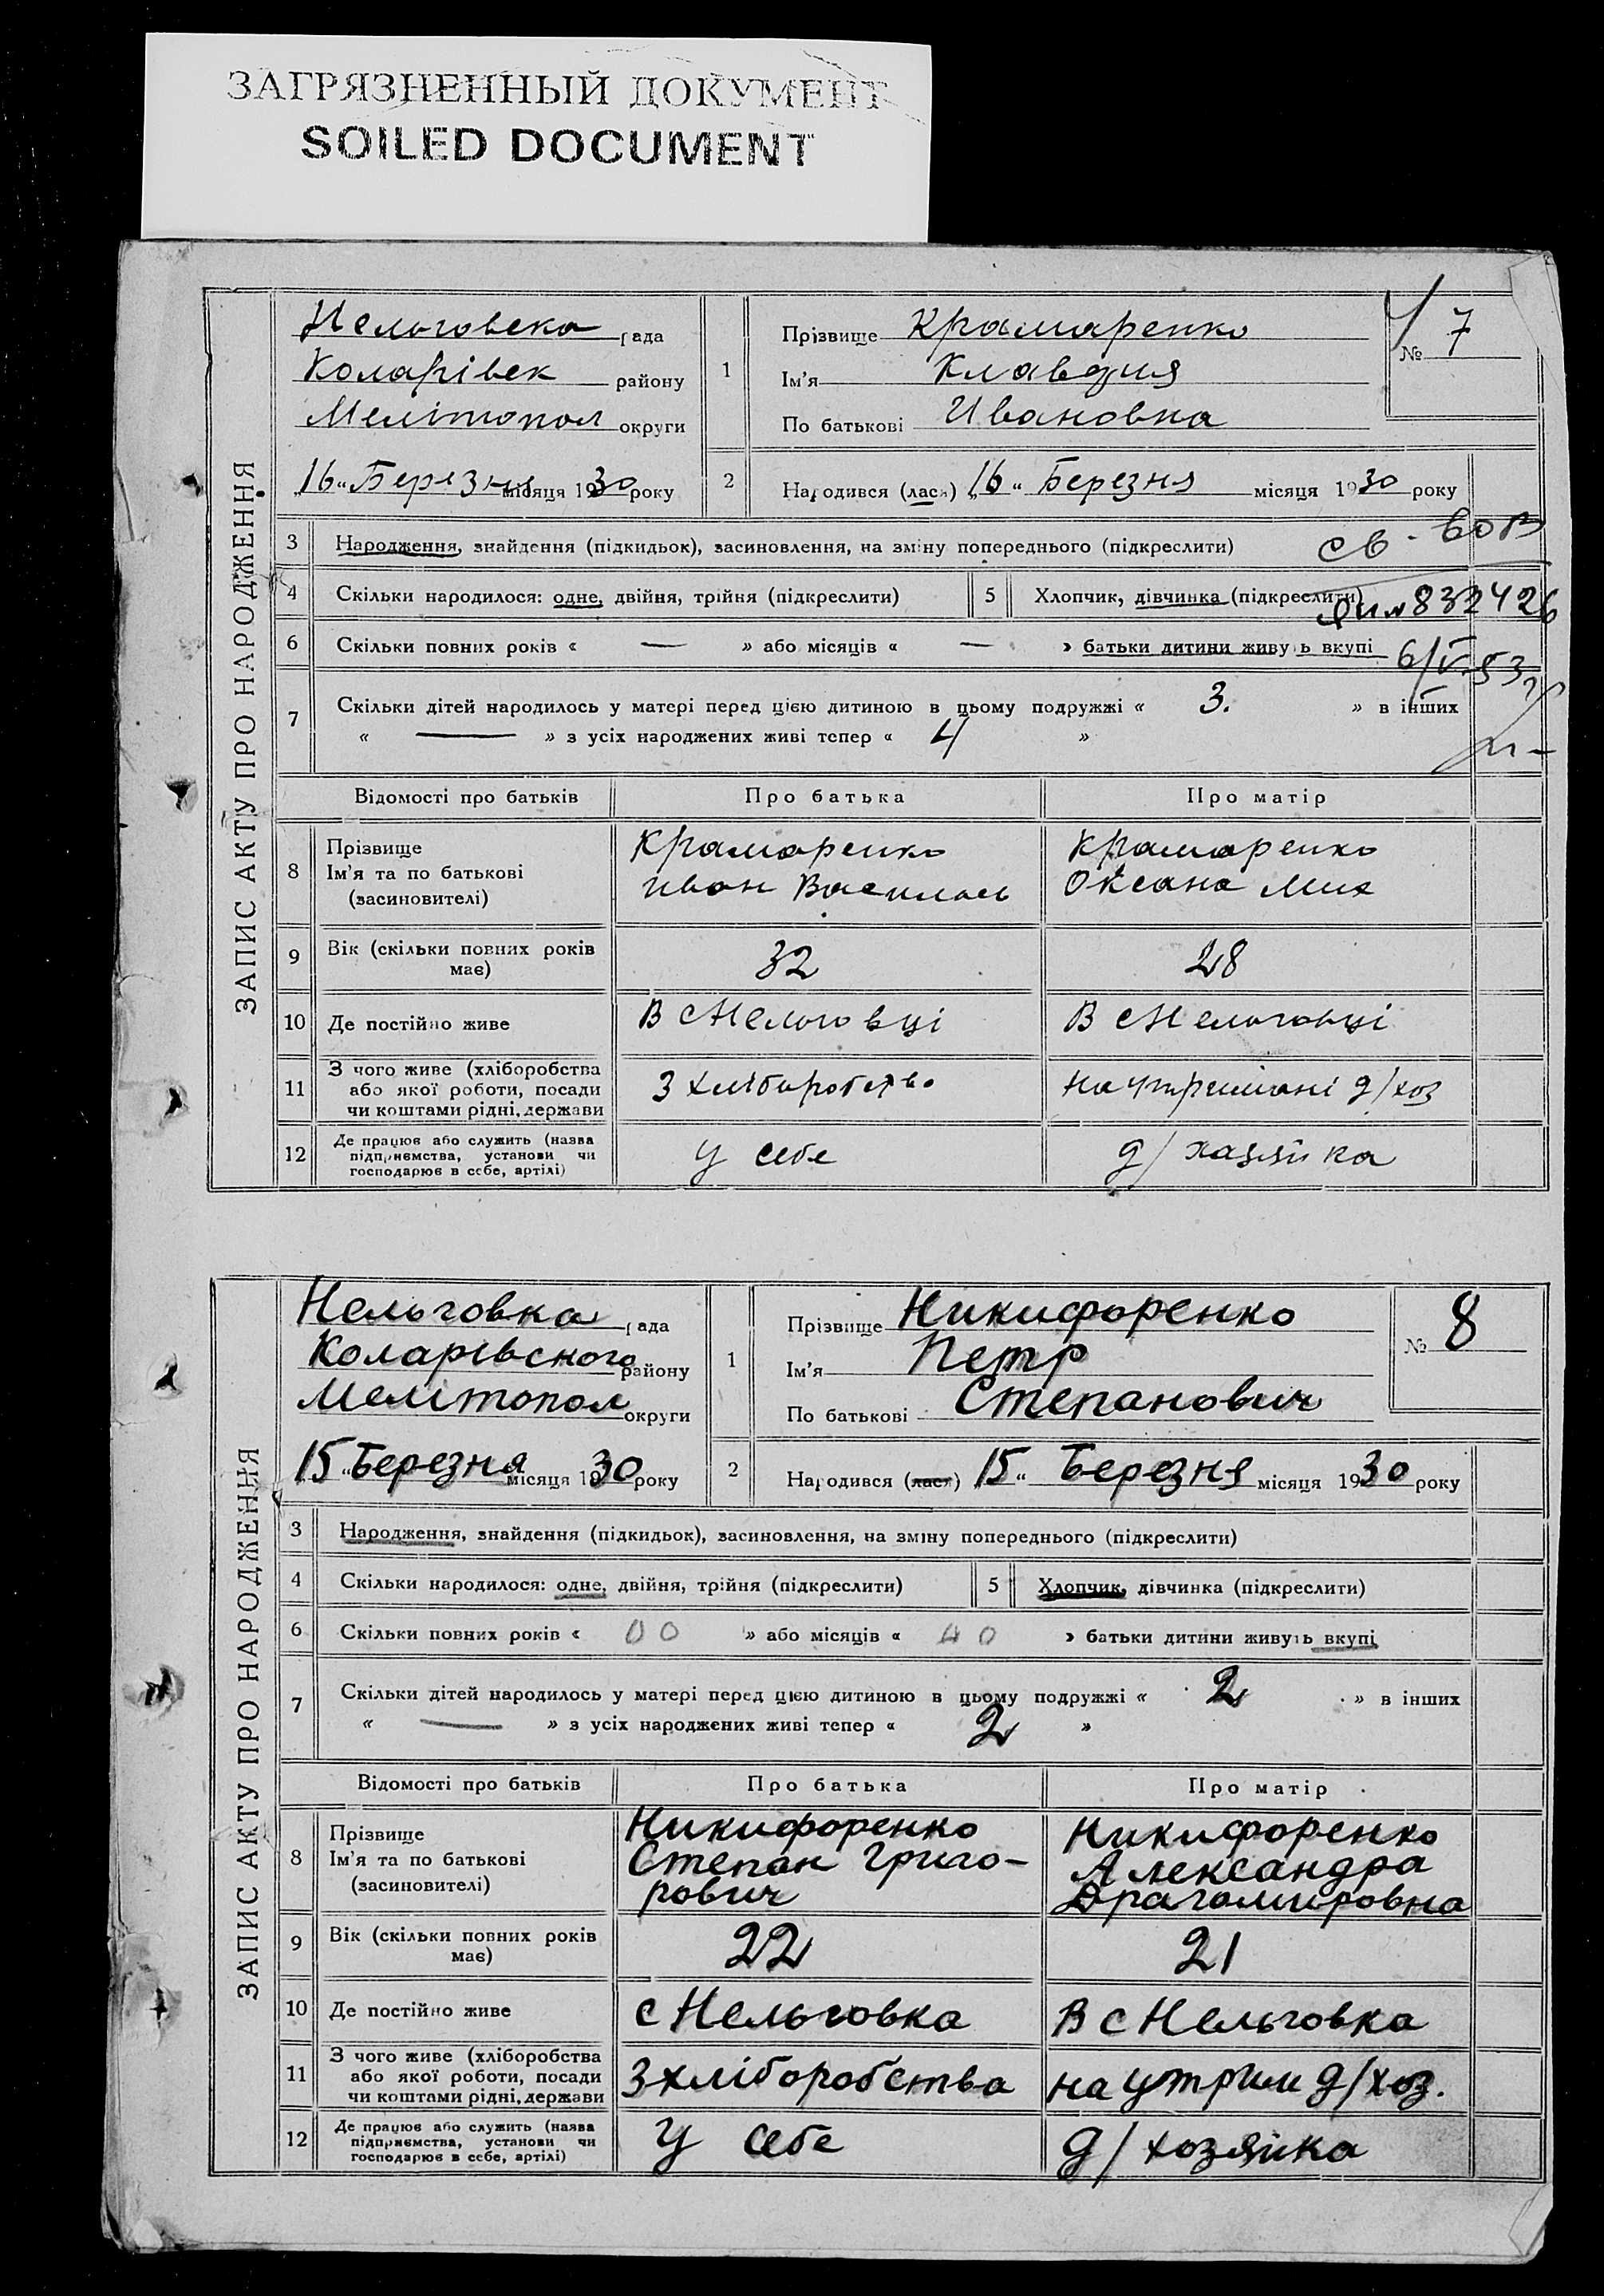 ЗАГРЯЗНЕННЫЙ ДОКУМЕНТ
SOILED DOCUMENT
ЗАПИС АКТУ ПРО НАРОДЖЕННЯ
Нельговска рада
Коларівск району
Мелітопол округи
„16" Березня місяця 1930 року
1 Прізвище Крамаренко
Ім'я Клавдия
По батькові Ивановна
№ 7
2 Народився (лася) „16" Березня місяця 1930 року
3 Народження, знайдення (підкидьок), засиновлення, на зміну попереднього (підкреслити)
4 Скільки народилося: одне, двійня, трійня (підкреслити)
5 Хлопчик, дівчинка (підкреслити)
св-во в
832426
6/V-53
6 Скільки повних років « — » або місяців « — » батьки дитини живуть вкупі
7 Скільки дітей народилось у матері перед цією дитиною в цьому подружжі « 3. » в інших
« — » з усіх народжених живі тепер « 4 »
Відомості про батьків Про батька Про матір
8 Прізвище Ім'я та по батькові (засиновителі)
Крамаренко
Иван Васильев
Крамаренко
Оксана Мих
9 Вік (скільки повних років має) 32 28
10 Де постійно живе В с Нельговці В с Нельговці
11 З чого живе (хліборобства або якої роботи, посади чи коштами рідні, держави
З хліборобства на утримані д/хоз
12 Де працює або служить (назва підприємства, установи чи господарює в себе, артілі)
У себе д/хазяйка
ЗАПИС АКТУ ПРО НАРОДЖЕННЯ
Нельговка рада
Коларівского району
Мелітопол округи
15 „Березня місяця 1930 року
1 Прізвище Никифоренко
Ім'я Петр
По батькові Степанович
№ 8
2 Народився (лася) „15" Березня місяця 1930 року
3 Народження, знайдення (підкидьок), засиновлення, на зміну попереднього (підкреслити)
4 Скільки народилося: одне, двійня, трійня (підкреслити)
5 Хлопчик, дівчинка (підкреслити)
6 Скільки повних років « 00 » або місяців « » батьки дитини живуть вкупі
7 Скільки дітей народилось у матері перед цією дитиною в цьому подружжі « 2 » в інших
« — » з усіх народжених живі тепер « 2 »
Відомості про батьків Про батька Про матір
8 Прізвище Ім'я та по батькові (засиновителі)
Никифоренко
Степан Григо-
рович
Никифоренко
Александра
Драгомировна
9 Вік (скільки повних років має) 22 21
10 Де постійно живе с Нельговка В с Нельговка
11 З чого живе (хліборобства або якої роботи, посади чи коштами рідні, держави
З хліборобства на утрим д/хоз.
12 Де працює або служить (назва підприємства, установи чи господарює в себе, артілі)
У себе д/хозяйка